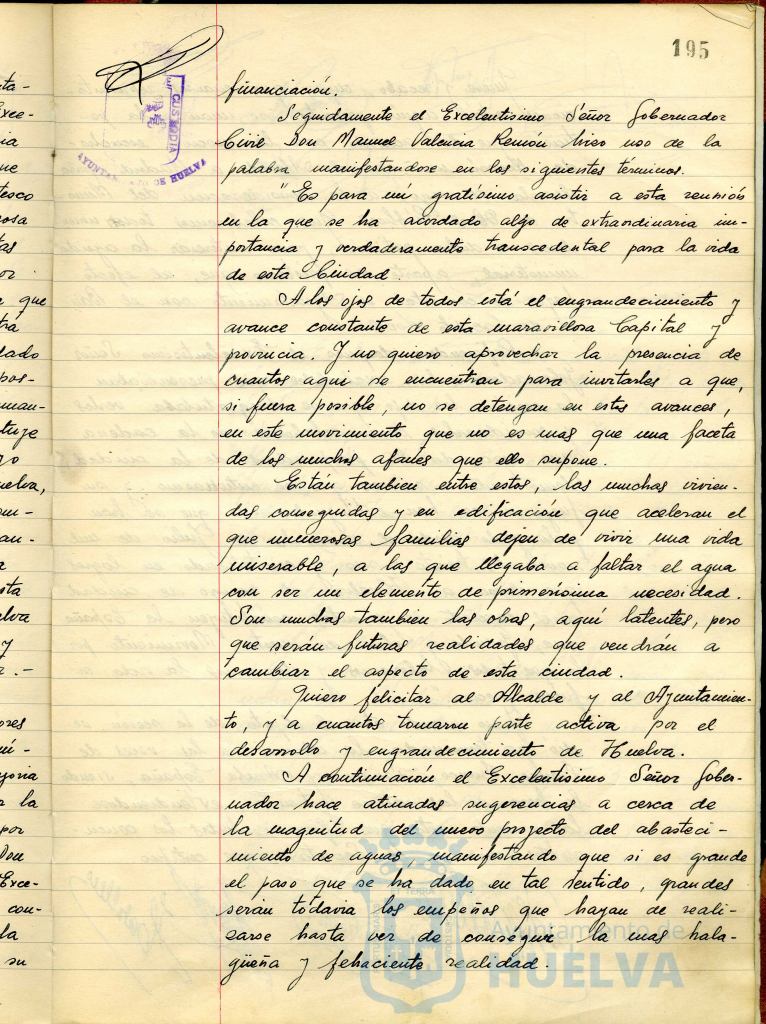 195
financiación.
Seguidamente el Excelentisimo Señor Gobernador
Civil Don Manuel Valencia Remón hizo uso de la
palabra manifestandose en los siguientes términos.
"Es para mi gratísimo asistir a esta reunión
en la que se ha acordado algo de extraordinaria im-
portancia y verdaderamente transcedental para la vida
de esta Ciudad.
A los ojos de todos está el engrandecimiento y
avance constante de esta maravillosa Capital y
provincia. Y no quiero aprovechar la presencia de
cuantos aqui se encuentran para invitarles a que,
si fuera posible, no se detengan en estos avances,
en este movimiento que no es mas que una faceta
de los muchos afanes que ello supone.
Están tambien entre estos, las muchas vivien-
das conseguidas y en edificación que aceleran el
que numerosas familias dejen de vivir una vida
miserable, a las que llegaba a faltar el agua
con ser un elemento de primerísima necesidad.
Son muchas tambien las obras, aquí latentes, pero
que serán futuras realidades que vendrán a
cambiar el aspecto de esta ciudad.
Quiero felicitar al Alcalde y al Ayuntamien-
to, y a cuantos tomaron parte activa por el
desarrollo y engrandecimiento de Huelva.
A continuación el Excelentisimo Señor Gober-
nador hace atinadas sugerencias a cerca de
la magnitud del nuevo projecto del abasteci-
miento de aguas, manifestando que si es grande
el paso que se ha dado en tal sentido, grandes
serán todavia los empeños que hayan de reali-
zarse hasta ver de conseguir la mas hala-
güeña y fehaciente realidad.
CUSTODIA
DE HUELVA
Ayuntamiento de
HUELVA